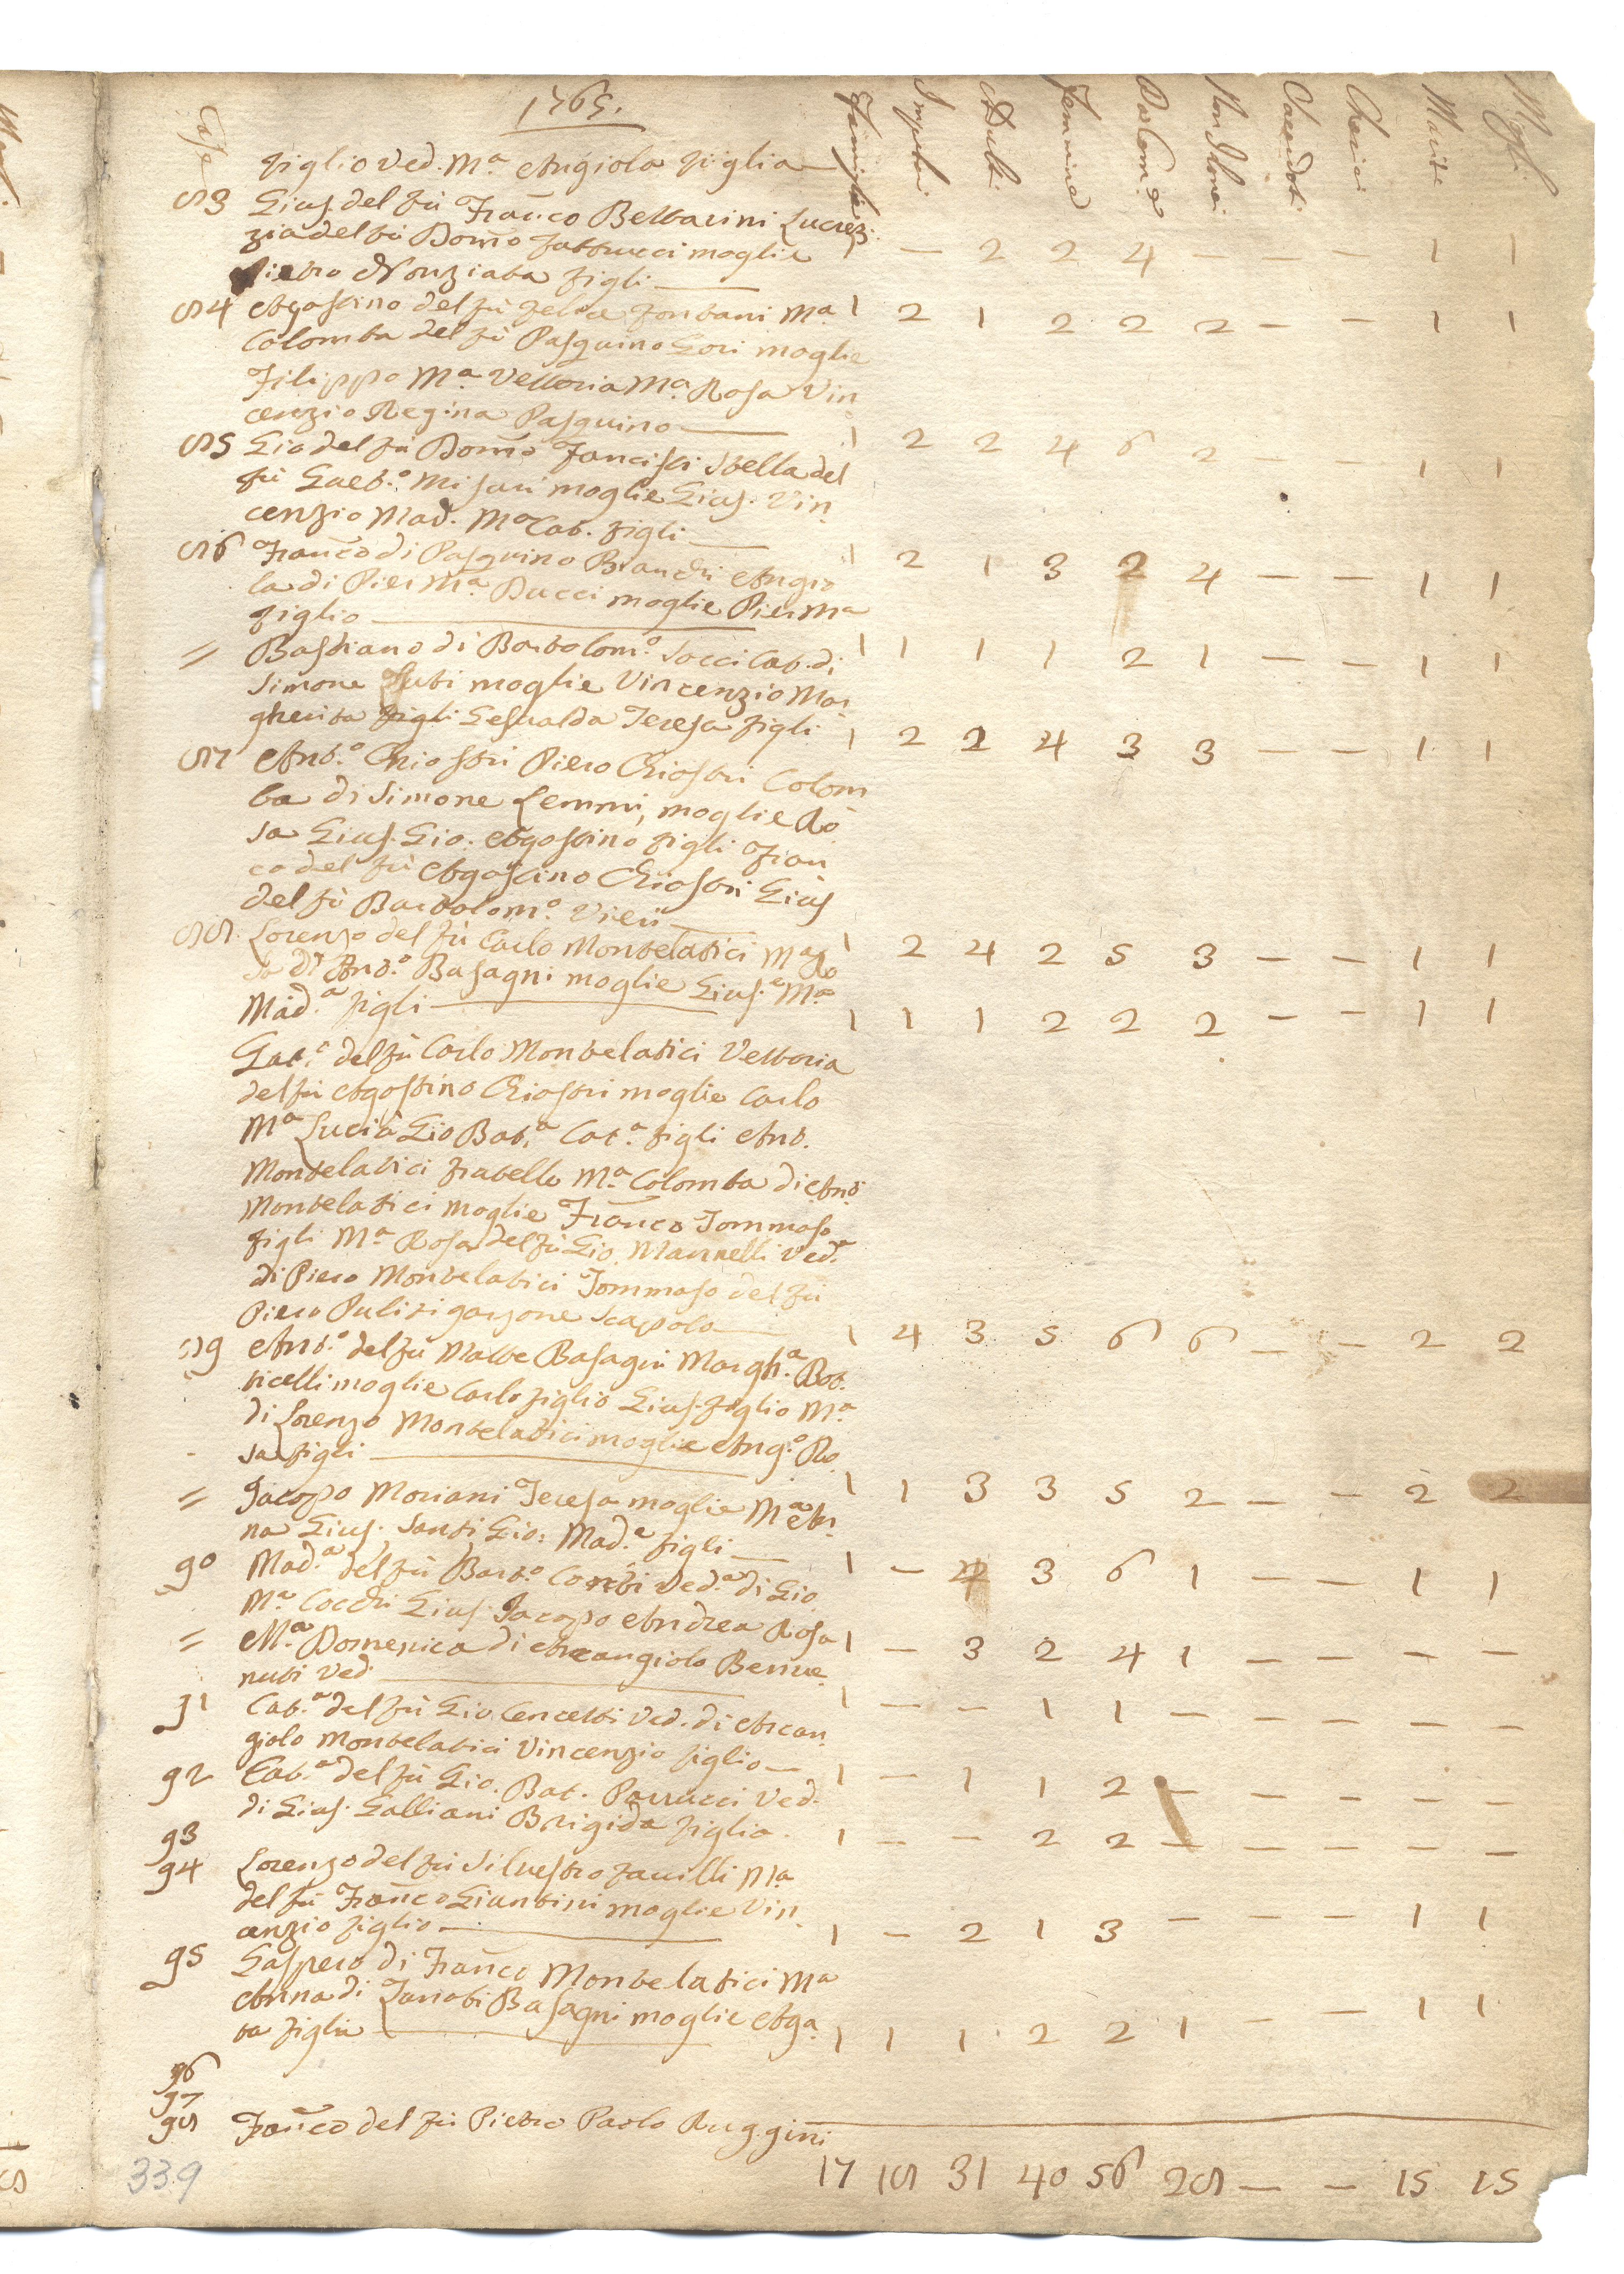 1765.
Case Famiglie Impuberi Adulti Femmine Da Com.e Non Idonei Sacerdoti Cherici Mariti Mogli
figlio Ved. M.a Angiola figlia
83 Gius. del fù Franco Bettarini Lucrez
zia del fù Dom̃o Fattucci moglie 1 — 2 2 4 — — — 1 1
Pietro Nonziata figli
84 Agostino del fù Felice Fontani M.a 1 2 1 2 2 2 — — 1 1
Colomba del fù Pasquino Gori moglie
Filippo M.a Vettoria M.a Rosa Vin
cenzio Regina Pasquino 1 2 2 4 6 2 — — 1 1
85 Gio del fù Dom̃o Stella del
fù Gaet.o moglie Gius. Vin
cenzio Mad. M.a Cat. figli 1 2 1 3 2 4 — — 1 1
86 Franco di Pasquino Bianchi Angio
la di Pier M.a Ducci moglie Pier M.a
figlio 1 1 1 1 2 1 — — 1 1
= Bastiano di Bartolom.o Socci Cat. di
Simone moglie Vincenzio Mar
gherita figli Gesualda Teresa figli 1 2 2 4 3 3 — — 1 1
87 Ant.o Chiostri Piero Chiostri Colom
ba di Simone Lemmi, moglie Ro
sa Gius. Gio. Agostino figli Fran
co del fù Agostino Chiostri Gius
del fù Bartolom.o Vieri 1 2 4 2 5 3 — — 1 1
88 Lorenzo del fù Carlo Montelatici M.a Ro
sa di Ant.o Basagni moglie Gius.e M.a
Mad.a figli 1 1 1 2 2 2 — — 1 1
Gaet.o del fù Carlo Montelatici Vettoria
del fù Agostino Chiostri moglie Carlo
M.a Lucia Gio Bat.a Cat.a figli Ant.
Montelatici fratello M.a Colomba di Ant.o
Montelatici moglie Franco Tommaso
figli M.a Rosa del fù Gio. Mannelli Ved.a
di Piero Montelatici Tommaso del fù
Piero Puliti garzone Scapolo 1 4 3 5 6 6 — — 2 2
89 Ant.o del fù Matte Basagni Margh.a Bot
ticelli moglie Carlo figlio Gius. figlio M.a
di Lorenzo Montelatici moglie Ang.o Ro
sa figli 1 1 3 3 5 2 — — 2 2
= Jacopo Moriani Teresa moglie M.a An
na Gius. Santi Gio: Mad.a figli 1 — 4 3 6 1 — — 1 1
90 Mad.a del fù Bart.o Ved.a di Gio
M.a Cocchi Gius. Jacopo Andrea Rosa 1 — 3 2 4 1 — — — —
= M.a Domenica di Arcangiolo Benve
nuti Ved. 1 — — 1 1 — — — — —
91 Cat.a del fù Gio. Cencetti Ved. di Arcan
giolo Montelatici Vincenzio figlio 1 — 1 1 2 — — — — —
92 Cat.a del fù Gio. Bat. Parrucci Ved.
di Gius. Galliani Brigida figlia. 1 — — 2 2 — — — — —
93
94 Lorenzo del fù Silvestro Favilli M.a
del fù Franco Giuntini moglie Vin
cenzio figlio 1 — 2 1 3 — — — 1 1
95 Gaspero di Franco Montelatici M.a
Anna di Zanobi Basagni moglie Aga
ta figlia 1 1 1 2 2 1 — — 1 1
96
97
98 Franco del fù Pietro Paolo Ruggini
17 18 31 40 56 28 — — 15 15
339